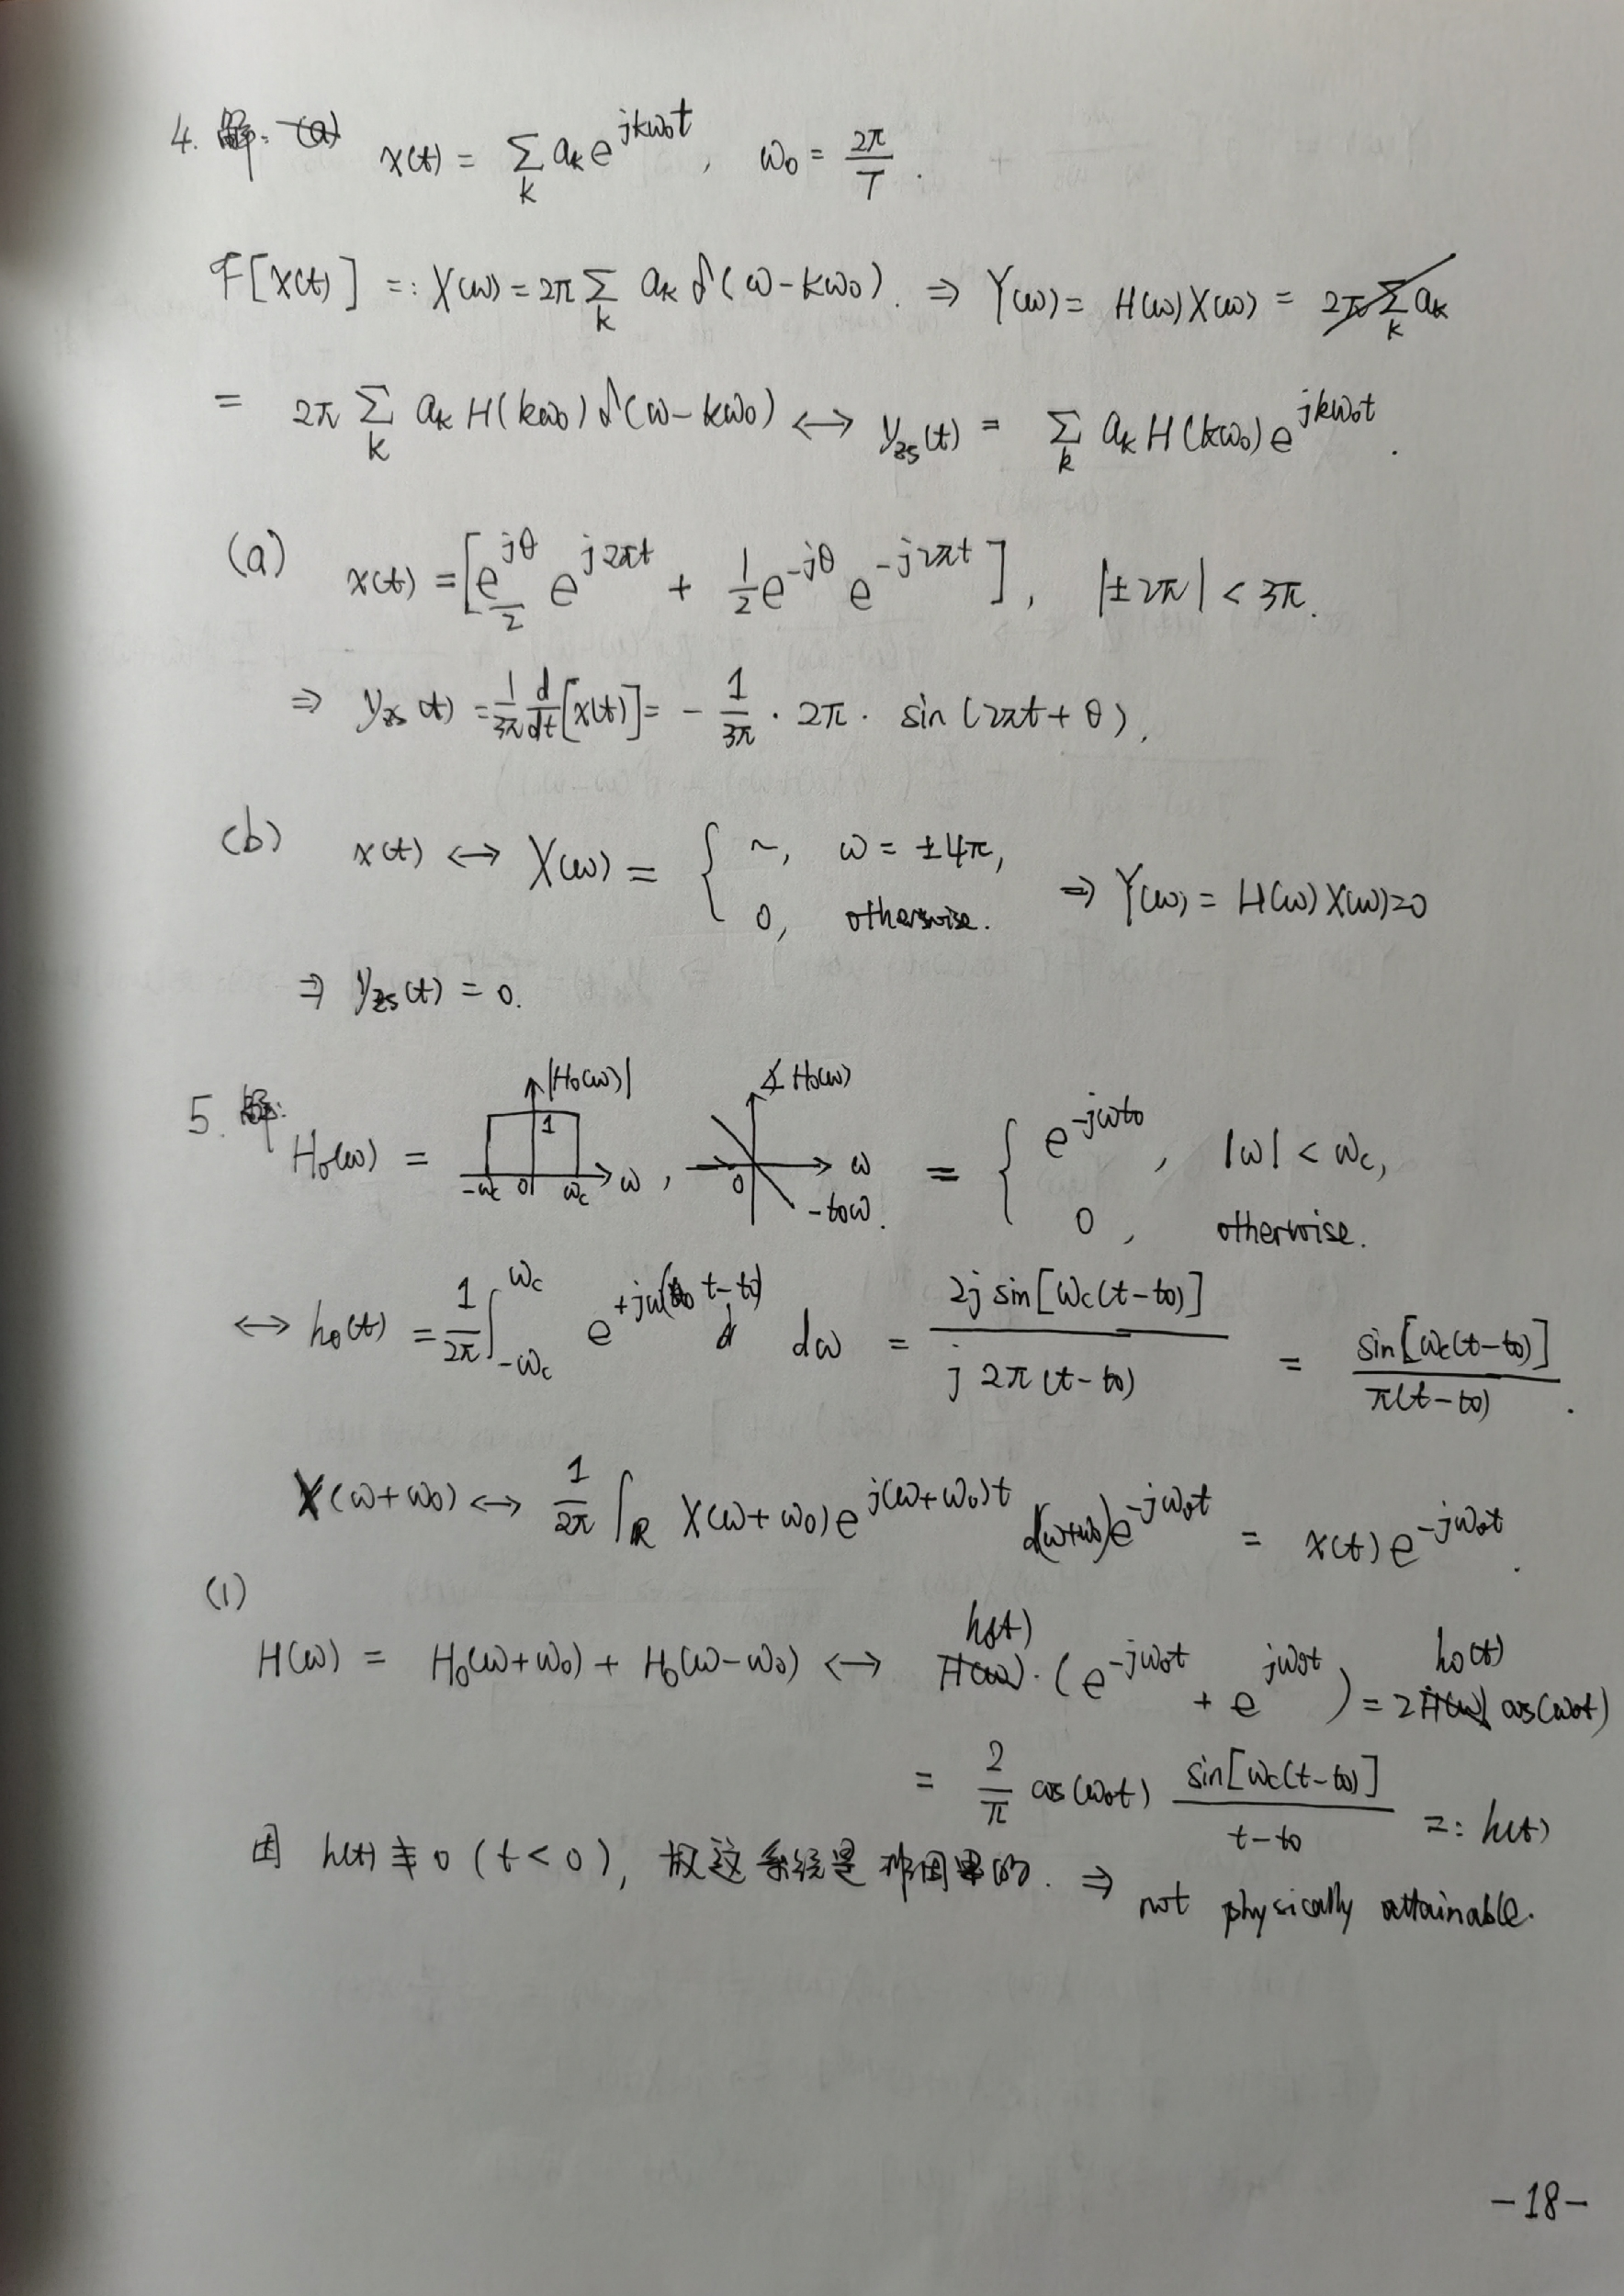 4. 解: (a) x(t) = ∑_k a_k e^{jkω₀t}, ω₀ = 2π/T.
F[x(t)] =: X(ω) = 2π ∑_k a_k δ(ω-kω₀). ⇒ Y(ω) = H(ω)X(ω) = 2π ∑_k a_k
= 2π ∑_k a_k H(kω₀) δ(ω-kω₀) ↔ y_zs(t) = ∑_k a_k H(kω₀) e^{jkω₀t}.
(a) x(t) = [e^{jθ}/2 e^{j2πt} + 1/2 e^{-jθ} e^{-j2πt}], |±2π| < 3π.
⇒ y_zs(t) = 1/3π d/dt [x(t)] = - 1/3π · 2π · sin(2πt+θ).
(b) x(t) ↔ X(ω) = { ~, ω = ±4π, 0, otherwise. ⇒ Y(ω) = H(ω)X(ω)=0
⇒ y_zs(t) = 0.
5. 解: H₀(ω) = |H₀(ω)| 1 -ω_c 0 ω_c ω, ∡H₀(ω) 0 ω -t₀ω. = { e^{-jωt₀}, |ω| < ω_c, 0, otherwise.
↔ h₀(t) = 1/2π ∫_{-ω_c}^{ω_c} e^{+jω(t-t₀)} dω = 2j sin[ω_c(t-t₀)] / j2π(t-t₀) = sin[ω_c(t-t₀)] / π(t-t₀).
X(ω+ω₀) ↔ 1/2π ∫_R X(ω+ω₀) e^{j(ω+ω₀)t} d(ω+ω₀) e^{-jω₀t} = x(t) e^{-jω₀t}.
(1)
H(ω) = H₀(ω+ω₀) + H₀(ω-ω₀) ↔ h₀(t) · (e^{-jω₀t} + e^{jω₀t}) = 2 h₀(t) cos(ω₀t)
= 2/π cos(ω₀t) sin[ω_c(t-t₀)] / t-t₀ =: h(t)
因 h(t) ≢ 0 (t < 0), 故这系统是非因果的. ⇒ not physically attainable.
-18-